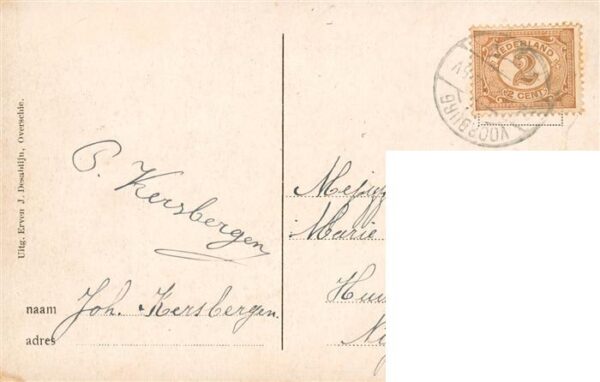 Uitg. Erven J. Desablijn, Overschie.
P. Kersbergen
naam Joh. Kersbergen.
adres
NEDERLAND
2
2 CENT
VOORBURG
Mejuff
Marie